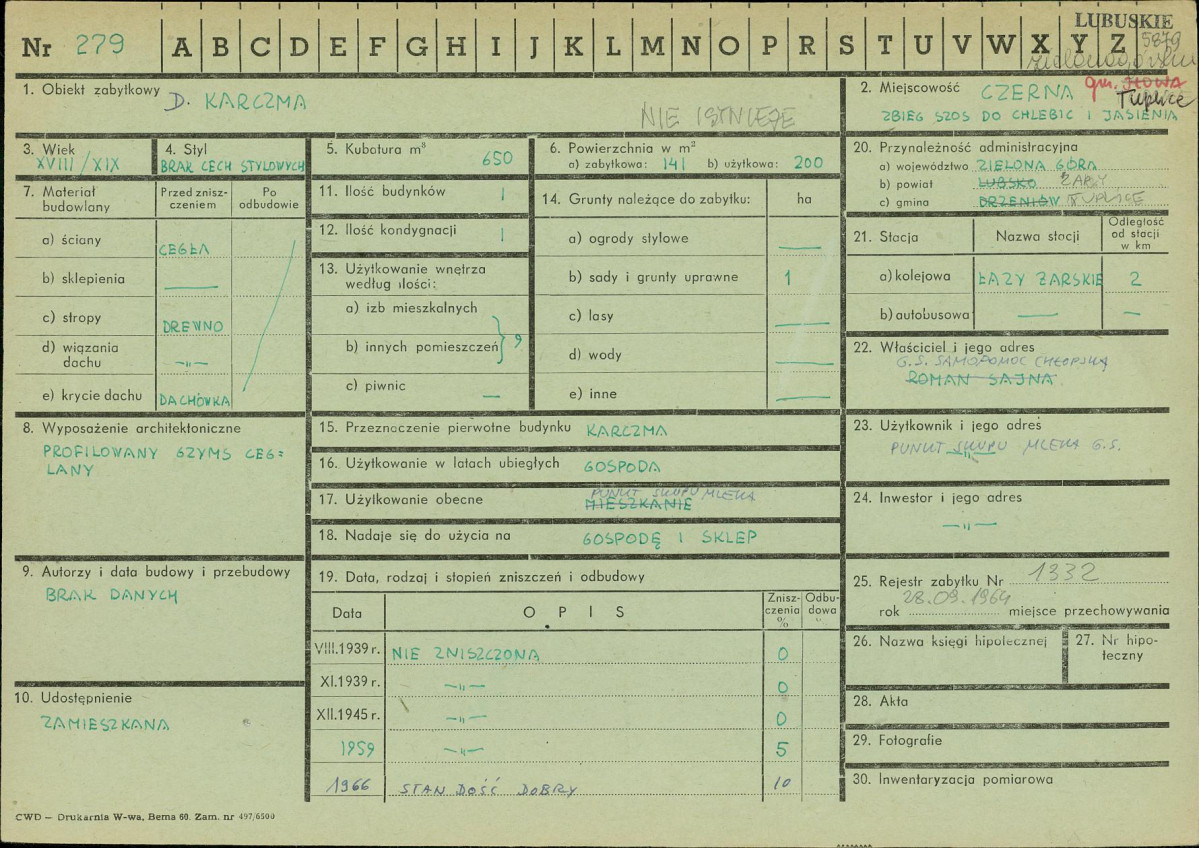 LUBUSKIE
Nr 279 A B C D E F G H I J K L M N O P R S T U V W X Y Z 5879
zielonogórskie
1. Obiekt zabytkowy D. KARCZMA
NIE ISTNIEJE
2. Miejscowość CZERNA gm. IŁOWA
Tuplice
ZBIEG SZOS DO CHLEBIC I JASIENIA
3. Wiek
XVIII/XIX
4. Styl
BRAK CECH STYLOWYCH
5. Kubatura m³ 650
6. Powierzchnia w m²
a) zabytkowa: 141 b) użytkowa: 200
20. Przynależność administracyjna
a) województwo ZIELONA GÓRA
b) powiat LUBSKO ŻARY
c) gmina BRZENIÓW TUPLICE
7. Materiał budowlany
Przed zniszczeniem
Po odbudowie
a) ściany CEGŁA
b) sklepienia —
c) stropy DREWNO
d) wiązania dachu —„—
e) krycie dachu DACHÓWKA
11. Ilość budynków 1
12. Ilość kondygnacji 1
13. Użytkowanie wnętrza
według ilości:
a) izb mieszkalnych
b) innych pomieszczeń } 9
c) piwnic —
14. Grunty należące do zabytku: ha
a) ogrody stylowe —
b) sady i grunty uprawne 1
c) lasy —
d) wody —
e) inne —
21. Stacja Nazwa stacji Odległość od stacji w km
a) kolejowa ŁAZY ŻARSKIE 2
b) autobusowa — —
22. Właściciel i jego adres
G.S. SAMOPOMOC CHŁOPSKA
ROMAN SAJNA
8. Wyposażenie architektoniczne
PROFILOWANY GZYMS CEG=
LANY
15. Przeznaczenie pierwotne budynku KARCZMA
16. Użytkowanie w latach ubiegłych GOSPODA
PUNKT SKUPU MLEKA
17. Użytkowanie obecne MIESZKANIE
18. Nadaje się do użycia na GOSPODĘ I SKLEP
23. Użytkownik i jego adres
PUNKT SKUPU MLEKA G.S.
—„—
24. Inwestor i jego adres
—„—
9. Autorzy i data budowy i przebudowy
BRAK DANYCH
10. Udostępnienie
ZAMIESZKANA
19. Data, rodzaj i stopień zniszczeń i odbudowy
Data OPIS Zniszczenia % Odbudowa %
VIII.1939 r. NIE ZNISZCZONA 0
XI.1939 r. —„— 0
XII.1945 r. —„— 0
1959 —„— 5
1966 STAN DOŚĆ DOBRY 10
25. Rejestr zabytku Nr 1332
rok 28.09.1964 miejsce przechowywania
26. Nazwa księgi hipotecznej
27. Nr hipoteczny
28. Akta
29. Fotografie
30. Inwentaryzacja pomiarowa
CWD — Drukarnia W-wa, Bema 60. Zam. nr 497/6500